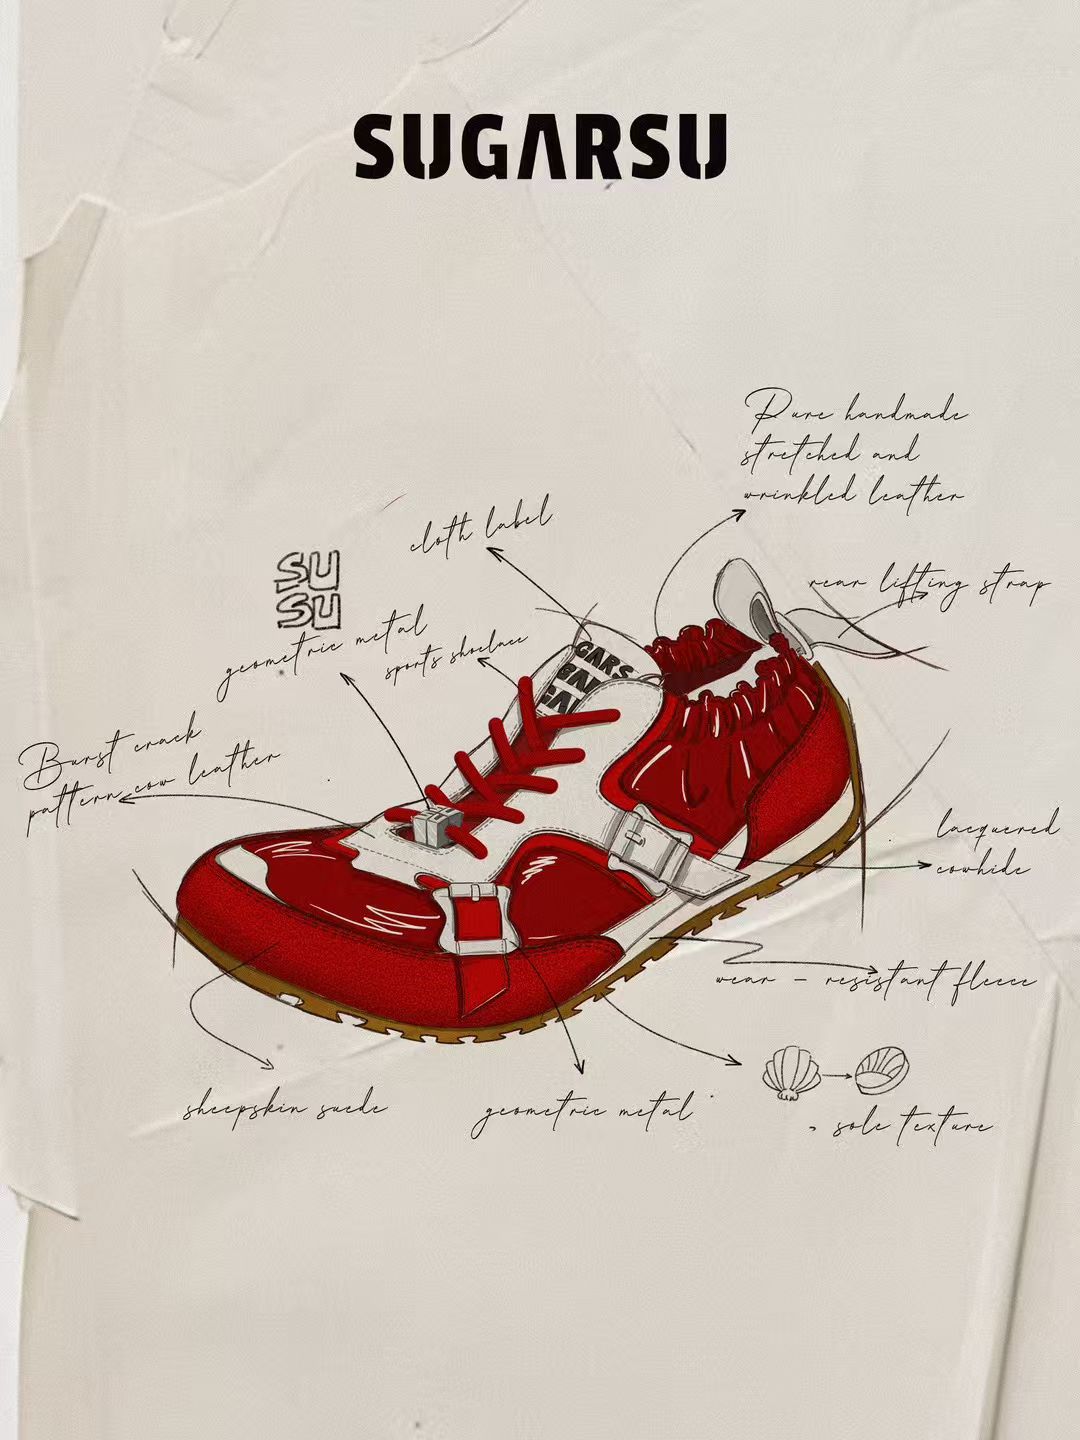 SUGARSU
Pure handmade
stretched and
wrinkled leather
cloth label
rear lifting strap
SU
SU
geometric metal
sports shoelace
GARS
Burst crack
pattern cow leather
lacquered
cowhide
wear - resistant fleece
sheepskin suede
geometric metal
sole texture